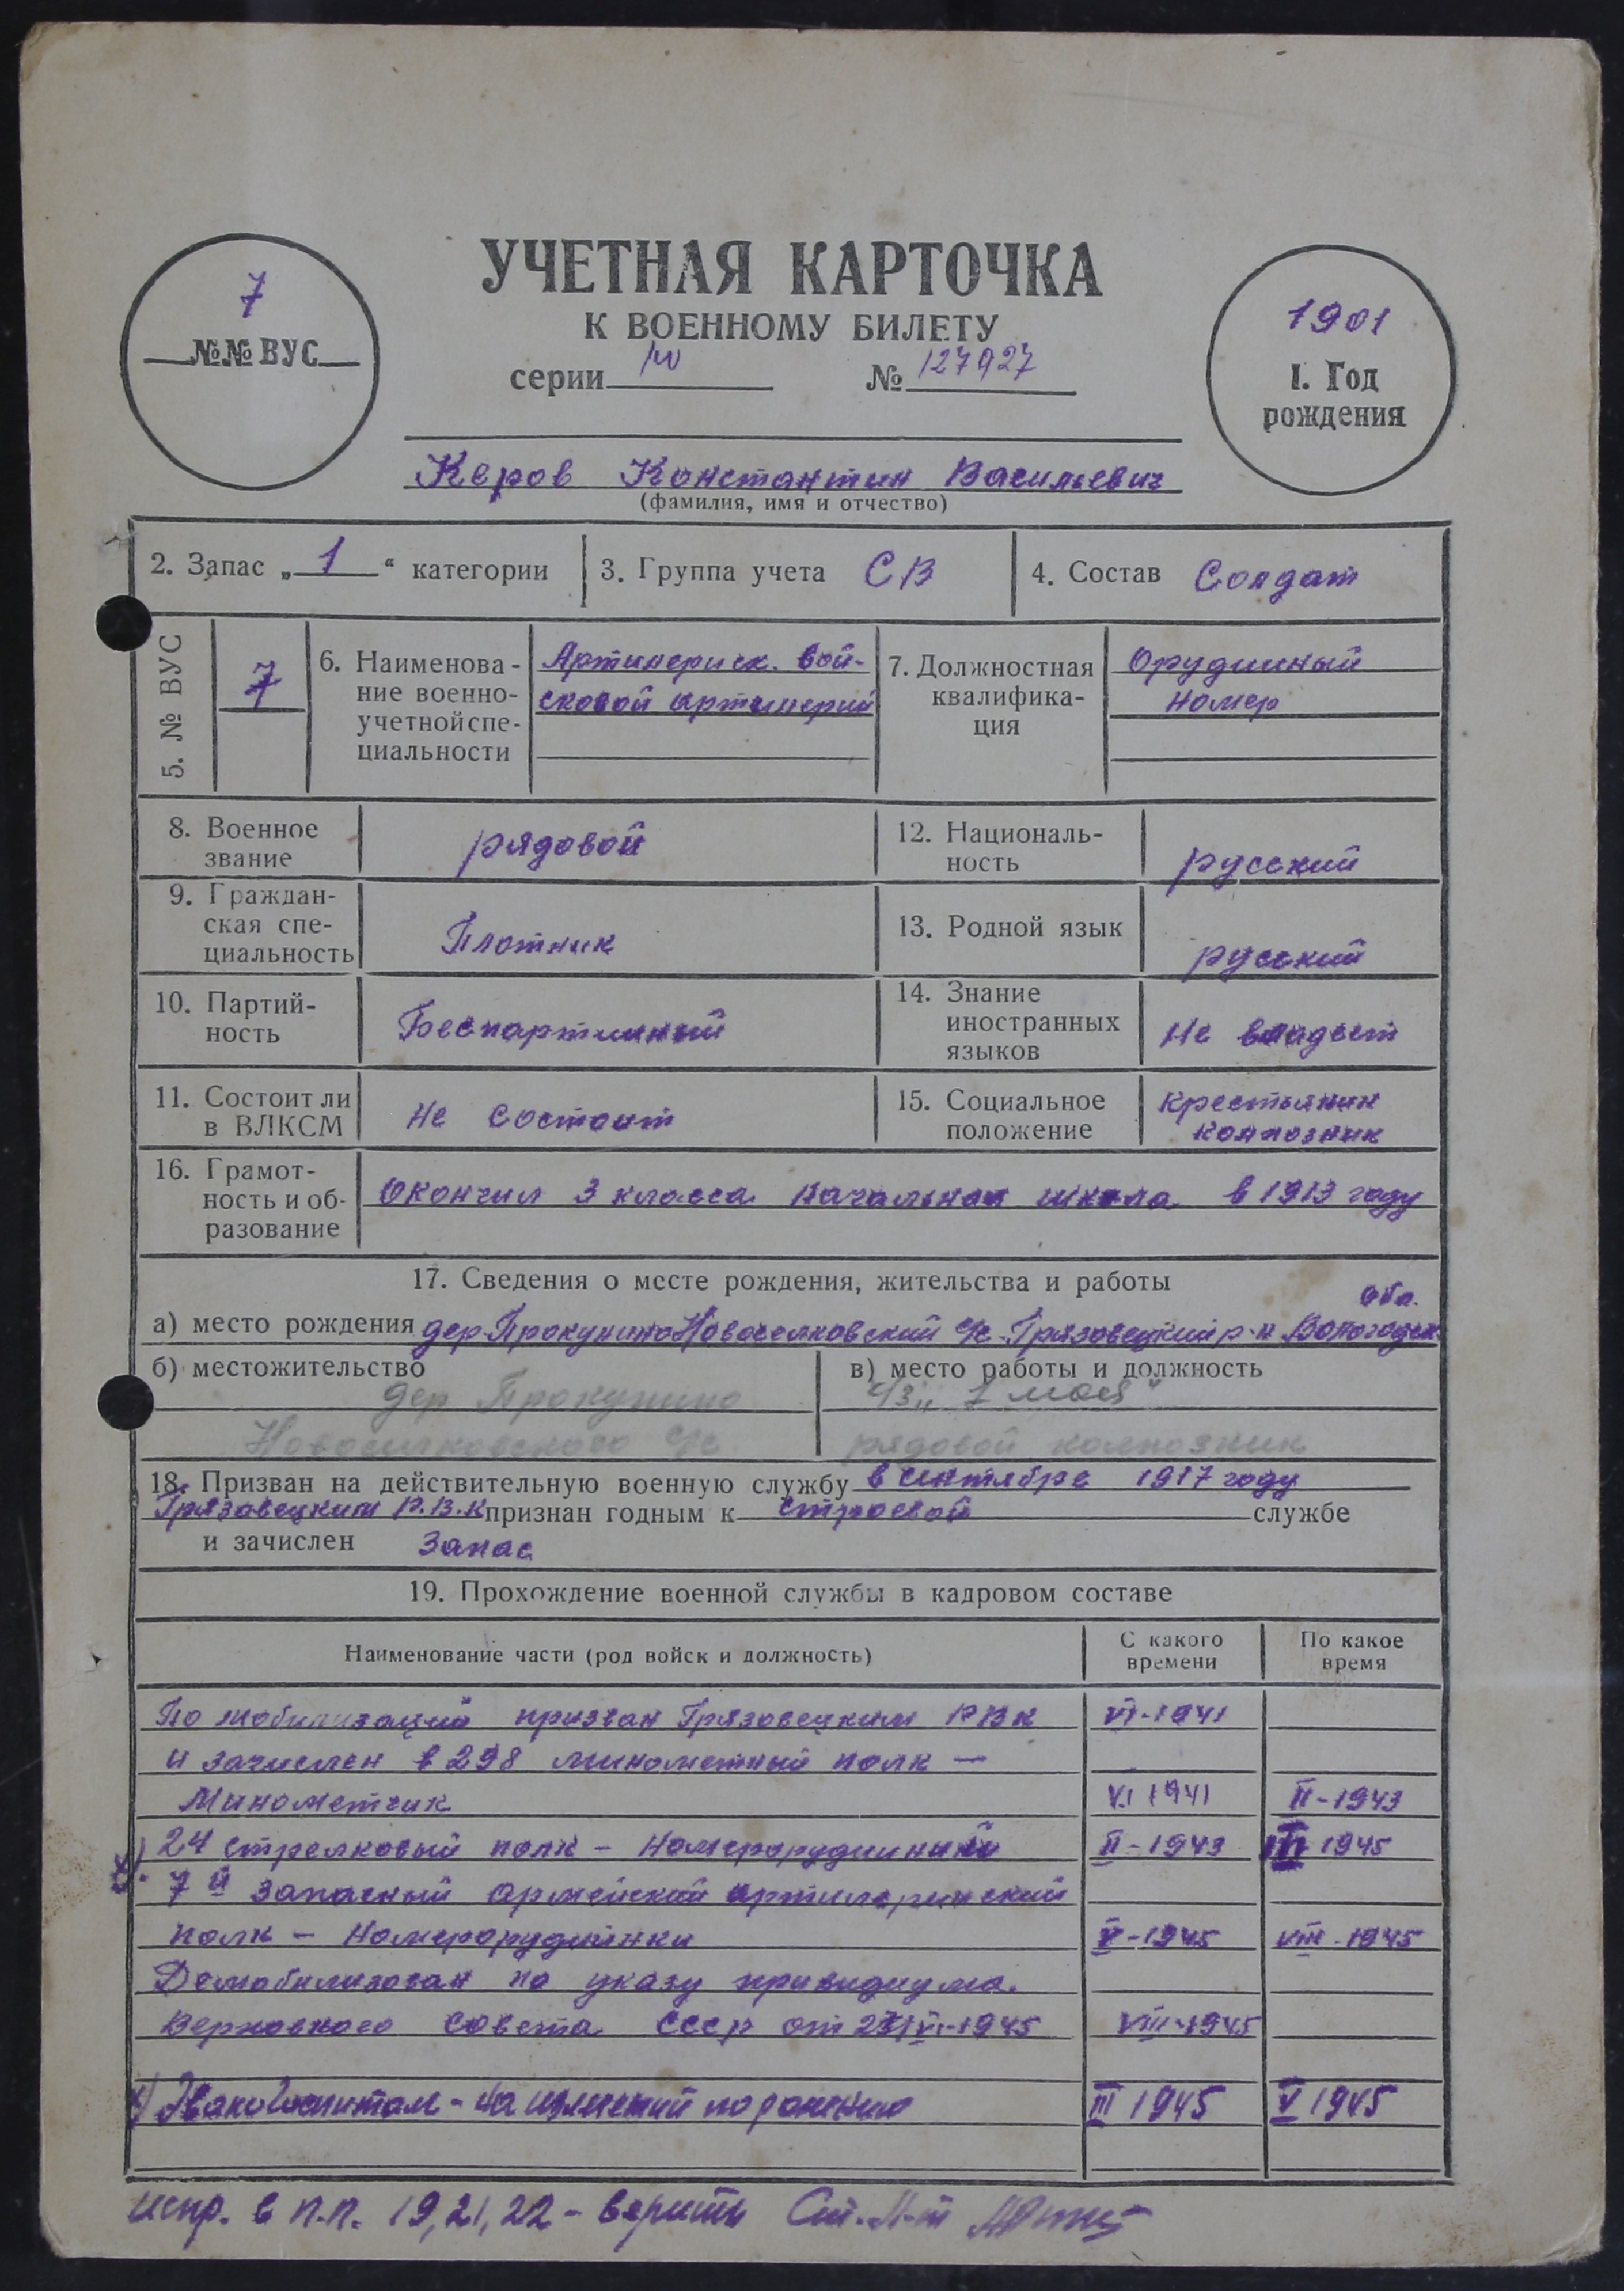 УЧЕТНАЯ КАРТОЧКА
К ВОЕННОМУ БИЛЕТУ
серии № 127927
7
№№ ВУС
1901
1. Год
рождения
Керов Константин Васильевич
(фамилия, имя и отчество)
2. Запас „ 1 “ категории
3. Группа учета СВ
4. Состав Солдат
5. № ВУС
7
6. Наименова-
ние военно-
учетной спе-
циальности
Артилериск. вой-
сковой артилерий
7. Должностная
квалифика-
ция
Орудииный
номер
8. Военное
звание
рядовой
12. Националь-
ность
русский
9. Граждан-
ская спе-
циальность
Плотник
13. Родной язык
русский
10. Партий-
ность
Беспартииный
14. Знание
иностранных
языков
Не владеет
11. Состоит ли
в ВЛКСМ
Не состоит
15. Социальное
положение
Крестьянин
колхозник
16. Грамот-
ность и об-
разование
Окончил 3 класса Начальная школа в 1913 году
17. Сведения о месте рождения, жительства и работы
обл.
а) место рождения дер. Прокунино Новоселковский с/с. Грязовецкий р-н Вологодск
б) местожительство
дер Прокунино
Новоселковского с/с
в) место работы и должность
к/з „1 мая“
рядовой колхозник
18. Призван на действительную военную службу в сентябре 1917 году
Грязавецким Р.В.К признан годным к строевой службе
и зачислен Запас
19. Прохождение военной службы в кадровом составе
Наименование части (род войск и должность)
С какого
времени
По какое
время
По мобилизаций призван Грязовецким РВК VI-1941
и зачислен в 298 минометный полк —
Минометчик VI 1941 II-1943
24 стрелковый полк - Номерорудиинный II-1943 III 1945
7й запасный армейский артилериский
полк - Номерорудиинки V-1945 VIII-1945
Демобилизован по указу призидиума
Верховного Совета СССР от VI-1945 VIII-1945
Эвакогоспитал - на излечений по ранению III 1945 V 1945
испр. в п.п. 19, 21, 22 - верить Ст. Л-т